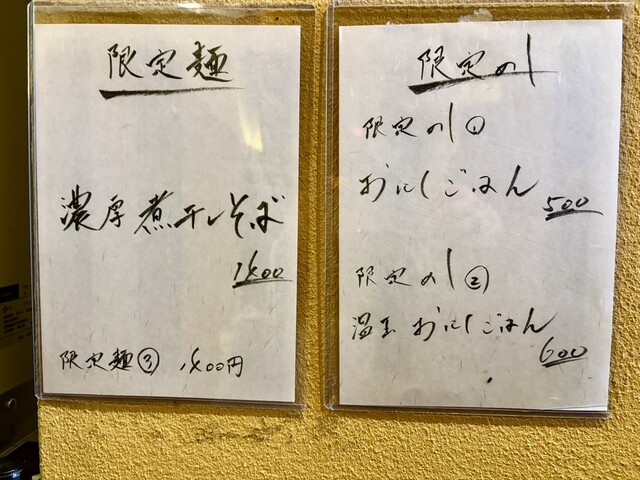 限定麺
濃厚煮干しそば
1400
限定麺③ 1400円
限定めし
限定めし①
おにくごはん
500
限定めし②
温玉おにくごはん
600